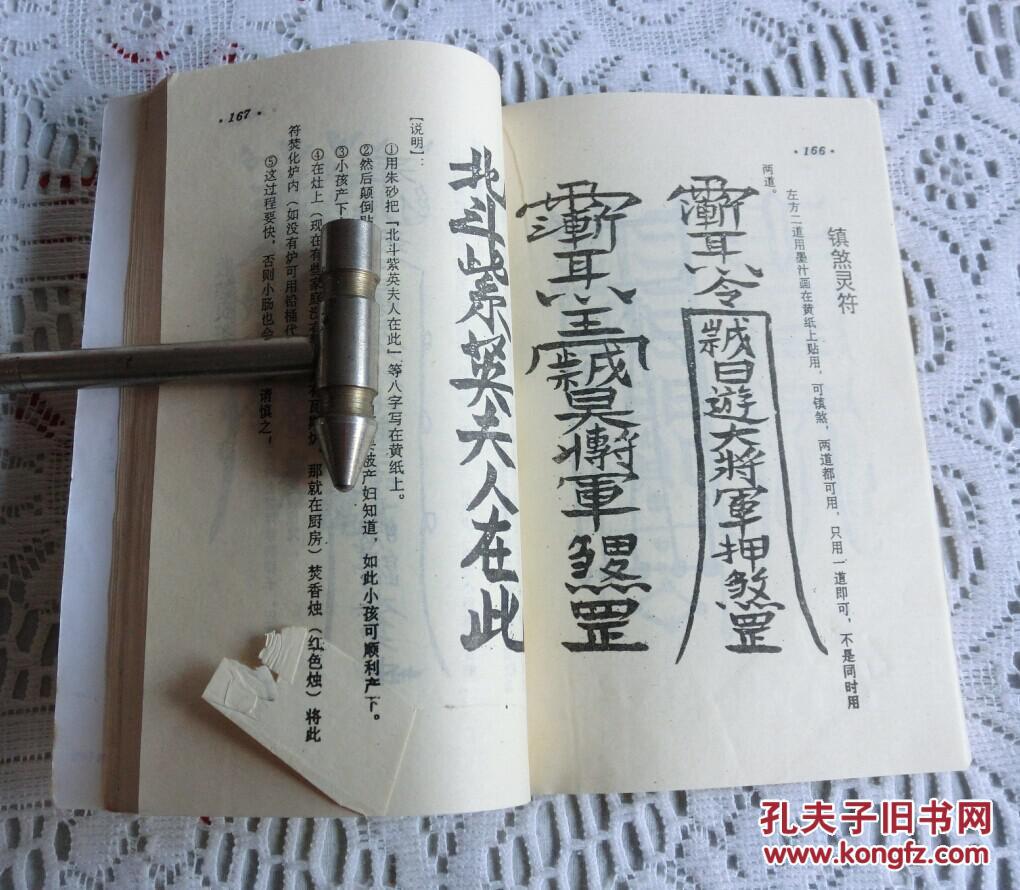 ·166·
镇煞灵符
左方二道用墨汁画在黄纸上贴用，可镇煞，两道都可用，只用一道即可，不是同时用
两道。
日遊大將軍押煞罡
軍 罡
·167·
北斗紫英夫人在此
【说明】：
①用朱砂把「北斗紫英夫人在此」等八字写在黄纸上。
②然后颠倒贴 被产妇知道，如此小孩可顺利产下。
③小孩产下
④在灶上（现在有些家庭没有 那就在厨房）焚香烛（红色烛）将此
符焚化炉内（如没有炉可用铅桶代
⑤这过程要快，否则小肠也会 请慎之，
孔夫子旧书网
www.kongfz.com